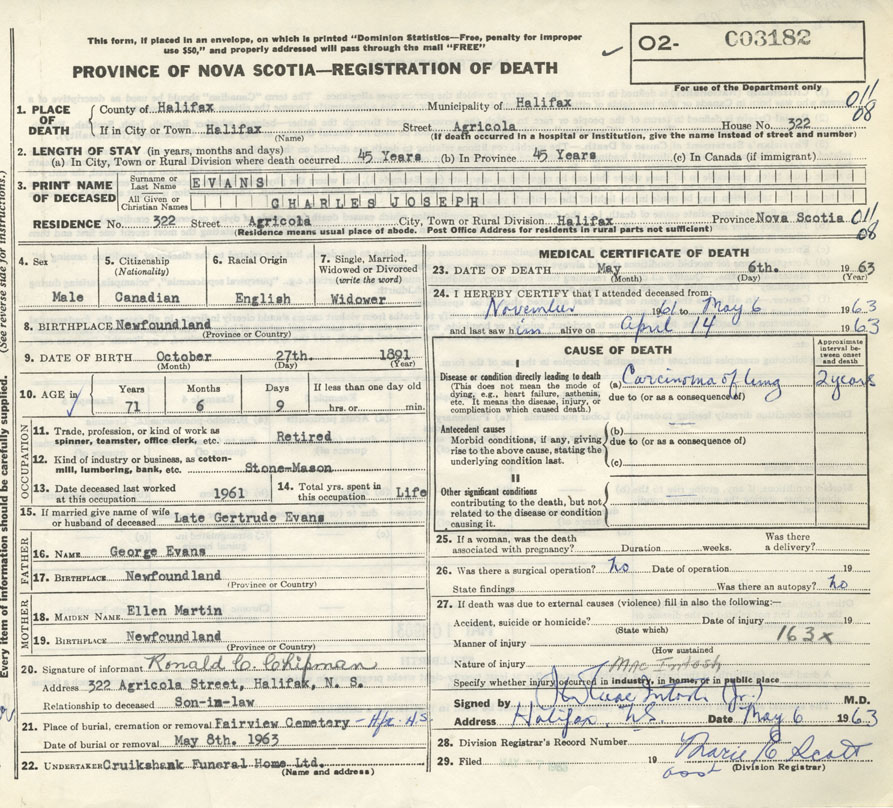 This form, if placed in an envelope, on which is printed "Dominion Statistics—Free, penalty for improper
use $50," and properly addressed will pass through the mail "FREE"
PROVINCE OF NOVA SCOTIA—REGISTRATION OF DEATH
✓ O2- C03182
For use of the Department only
011
08
1. PLACE OF DEATH
County of Halifax Municipality of Halifax
If in City or Town Halifax Street Agricola House No. 322
(Name) (If death occurred in a hospital or institution, give the name instead of street and number)
2. LENGTH OF STAY (in years, months and days)
(a) In City, Town or Rural Division where death occurred 45 Years (b) In Province 45 Years (c) In Canada (if immigrant)
3. PRINT NAME OF DECEASED
Surname or Last Name EVANS
All Given or Christian Names CHARLES JOSEPH
RESIDENCE No. 322 Street Agricola City, Town or Rural Division Halifax Province Nova Scotia 011
08
(Residence means usual place of abode. Post Office Address for residents in rural parts not sufficient)
4. Sex
Male
5. Citizenship
(Nationality)
Canadian
6. Racial Origin
English
7. Single, Married,
Widowed or Divorced
(write the word)
Widower
8. BIRTHPLACE Newfoundland
(Province or Country)
9. DATE OF BIRTH October 27th. 1891
(Month) (Day) (Year)
10. AGE in ✓
Years Months Days If less than one day old
71 6 9 hrs. or min.
OCCUPATION
11. Trade, profession, or kind of work as
spinner, teamster, office clerk, etc. Retired
12. Kind of industry or business, as cotton-
mill, lumbering, bank, etc. Stone-Mason
13. Date deceased last worked
at this occupation 1961
14. Total yrs. spent in
this occupation Life
15. If married give name of wife
or husband of deceased Late Gertrude Evans
FATHER
16. NAME George Evans
17. BIRTHPLACE Newfoundland
(Province or Country)
MOTHER
18. MAIDEN NAME Ellen Martin
19. BIRTHPLACE Newfoundland
(Province or Country)
20. Signature of informant Ronald C. Chipman
Address 322 Agricola Street, Halifax, N. S.
Relationship to deceased Son-in-law
21. Place of burial, cremation or removal Fairview Cemetery - Hfx. N.S.
Date of burial or removal May 8th. 1963
22. UNDERTAKER Cruikshank Funeral Home Ltd.
(Name and address)
MEDICAL CERTIFICATE OF DEATH
23. DATE OF DEATH May 6th. 1963
(Month) (Day) (Year)
24. I HEREBY CERTIFY that I attended deceased from:
November 1961 to May 6 1963
and last saw him alive on April 14 1963
CAUSE OF DEATH
Approximate interval between onset and death
I
Disease or condition directly leading to death
(This does not mean the mode of
dying, e.g., heart failure, asthenia,
etc. It means the disease, injury, or
complication which caused death.)
(a) Carcinoma of lung 2 years
due to (or as a consequence of)
Antecedent causes
Morbid conditions, if any, giving
rise to the above cause, stating the
underlying condition last.
(b)
due to (or as a consequence of)
(c)
II
Other significant conditions
contributing to the death, but not
related to the disease or condition
causing it.
25. If a woman, was the death
associated with pregnancy? Duration weeks. Was there
a delivery?
26. Was there a surgical operation? no Date of operation 19
State findings Was there an autopsy? no
27. If death was due to external causes (violence) fill in also the following:—
Accident, suicide or homicide? Date of injury 19
(State which)
Manner of injury 163x
(How sustained)
Nature of injury MacIntosh
Specify whether injury occurred in industry, in home, or in public place
Signed by M.D.
Address Halifax, N.S. Date May 6 1963
28. Division Registrar's Record Number
29. Filed 19 Marie E Scott
(Division Registrar)
(See reverse side for instructions.)
Every item of information should be carefully supplied.